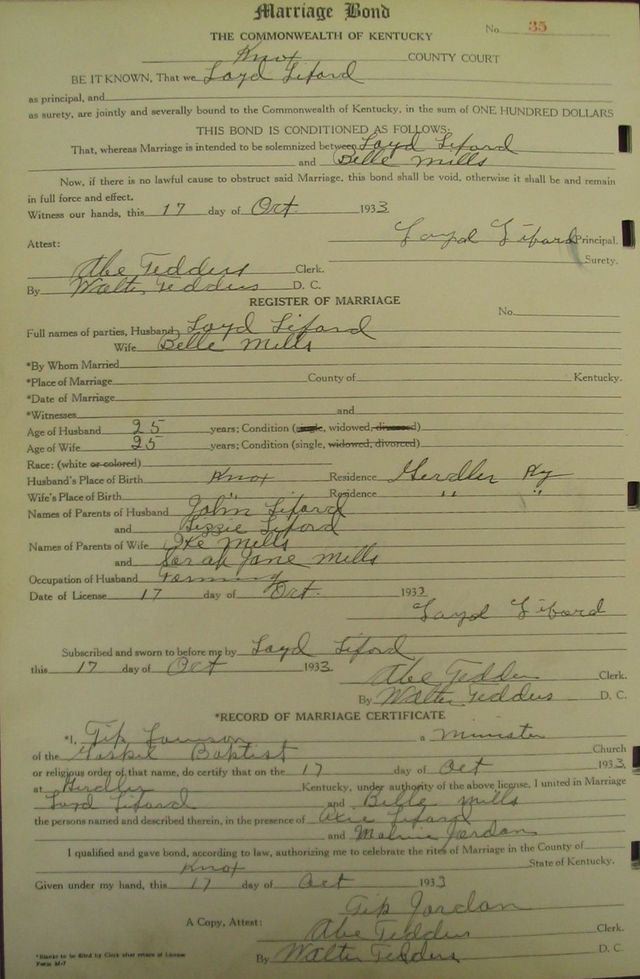 Marriage Bond
THE COMMONWEALTH OF KENTUCKY No. 35
Knox COUNTY COURT
BE IT KNOWN, That we Loyd Liford
as principal, and
as surety, are jointly and severally bound to the Commonwealth of Kentucky, in the sum of ONE HUNDRED DOLLARS
THIS BOND IS CONDITIONED AS FOLLOWS:
That, whereas Marriage is intended to be solemnized between Loyd Liford
and Belle Mills
Now, if there is no lawful cause to obstruct said Marriage, this bond shall be void, otherwise it shall be and remain
in full force and effect.
Witness our hands, this 17 day of Oct. 1933
Loyd Liford Principal.
Attest:
Surety.
Abe Tedders Clerk.
By Walter Tedders D. C.
REGISTER OF MARRIAGE
No.
Full names of parties, Husband Loyd Liford
Wife Belle Mills
*By Whom Married
*Place of Marriage County of Kentucky.
*Date of Marriage
*Witnesses and
Age of Husband 25 years; Condition (single, widowed, divorced)
Age of Wife 25 years; Condition (single, widowed, divorced)
Race: (white or colored)
Husband's Place of Birth Knox Residence Girdler Ky
Wife's Place of Birth " Residence " "
Names of Parents of Husband John Liford
and Lizzie Liford
Names of Parents of Wife Ike Mills
and Sarah Jane Mills
Occupation of Husband Farming
Date of License 17 day of Oct. 1933
Loyd Liford
Subscribed and sworn to before me by Loyd Liford
this 17 day of Oct 1933
Abe Tedders Clerk.
By Walter Tedders D. C.
*RECORD OF MARRIAGE CERTIFICATE
*I, Tip a Minister
of the Baptist Church
or religious order of that name, do certify that on the 17 day of Oct 1933
at Girdler Kentucky, under authority of the above license, I united in Marriage
Loyd Liford and Bille Mills
the persons named and described therein, in the presence of Liford
and Jordan
I qualified and gave bond, according to law, authorizing me to celebrate the rites of Marriage in the County of
Knox State of Kentucky.
Given under my hand, this 17 day of Oct 1933
Tip Jordan
A Copy, Attest: Abe Tedders Clerk.
By Walter Tedders D. C.
*Blanks to be filled by Clerk after return of License
Form M-7